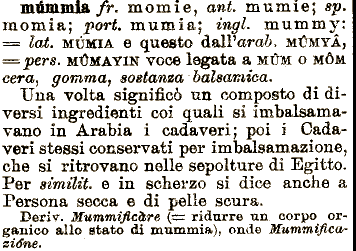 múmmia fr. momie, ant. mumie; sp.
momia; port. mumia; ingl. mummy:
= lat. MÚMIA e questo dall'arab. MÛMYÂ,
= pers. MÛMAYIN voce legata a MÛM o MÔM
cera, gomma, sostanza balsamica.
Una volta significò un composto di di-
versi ingredienti coi quali si imbalsama-
vano in Arabia i cadaveri; poi i Cada-
veri stessi conservati per imbalsamazione,
che si ritrovano nelle sepolture di Egitto.
Per similit. e in scherzo si dice anche a
Persona secca e di pelle scura.
Deriv. Mummificàre (= ridurre un corpo or-
ganico allo stato di mummia), onde Mummifica-
zióne.